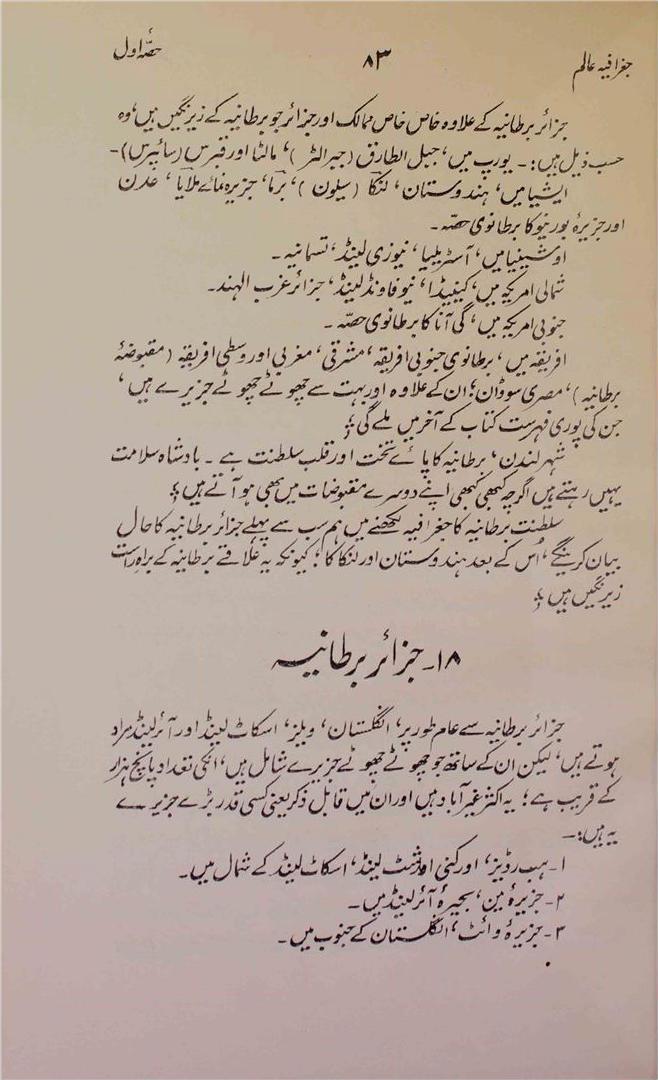 جغرافیہ عالم ۸۳ حصّہ اول
جزائر برطانیہ کے علاوہ خاص خاص ممالک اور جزائر جو برطانیہ کے زیر نگیں ہیں، وہ
حسب ذیل ہیں:۔ یورپ میں، جبل الطارق (جبرالٹر)، مالٹا اور قبرس (سائپرس)۔
ایشیا میں، ہندوستان، لنکا (سیلون)، برما، جزیرہ نمائے ملایا، عدن
اور جزیرۂ بورنیو کا برطانوی حصّہ۔
اوشینیا میں، آسٹریلیا، نیوزی لینڈ، تسمانیہ۔
شمالی امریکہ میں، کینیڈا، نیوفاونڈ لینڈ، جزائر غرب الہند۔
جنوبی امریکہ میں، گی آنا کا برطانوی حصّہ۔
افریقہ میں، برطانوی جنوبی افریقہ، مشرقی، مغربی اور وسطی افریقہ (مقبوضۂ
برطانیہ)، مصری سوڈان؛ ان کے علاوہ اور بہت سے چھوٹے چھوٹے جزیرے ہیں،
جن کی پوری فہرست کتاب کے آخر میں ملے گی؛
شہر لندن، برطانیہ کا پائے تخت اور قلب سلطنت ہے۔ بادشاہ سلامت
یہیں رہتے ہیں اگرچہ کبھی کبھی اپنے دوسرے مقبوضات میں بھی ہو آتے ہیں؛
سلطنت برطانیہ کا جغرافیہ لکھنے میں ہم سب سے پہلے جزائر برطانیہ کا حال
بیان کرینگے، اُس کے بعد ہندوستان اور لنکا کا؛ کیونکہ یہ علاقے برطانیہ کے براہ راست
زیر نگیں ہیں؛
۱۸۔ جزائر برطانیہ
جزائر برطانیہ سے عام طور پر، انگلستان، ویلز، اسکاٹ لینڈ اور آئرلینڈ مراد
ہوتے ہیں، لیکن ان کے ساتھ جو چھوٹے چھوٹے جزیرے شامل ہیں، انکی تعداد پانچ ہزار
کے قریب ہے؛ یہ اکثر غیر آباد ہیں اور ان میں قابل ذکر یعنی کسی قدر بڑے جزیرے
یہ ہیں:۔
۱۔ ہب رڈیز، اورکنی اور شٹ لینڈ، اسکاٹ لینڈ کے شمال میں۔
۲۔ جزیرۂ مین، بحیرۂ آئرلینڈ میں۔
۳۔ جزیرۂ وائٹ، انگلستان کے جنوب میں۔